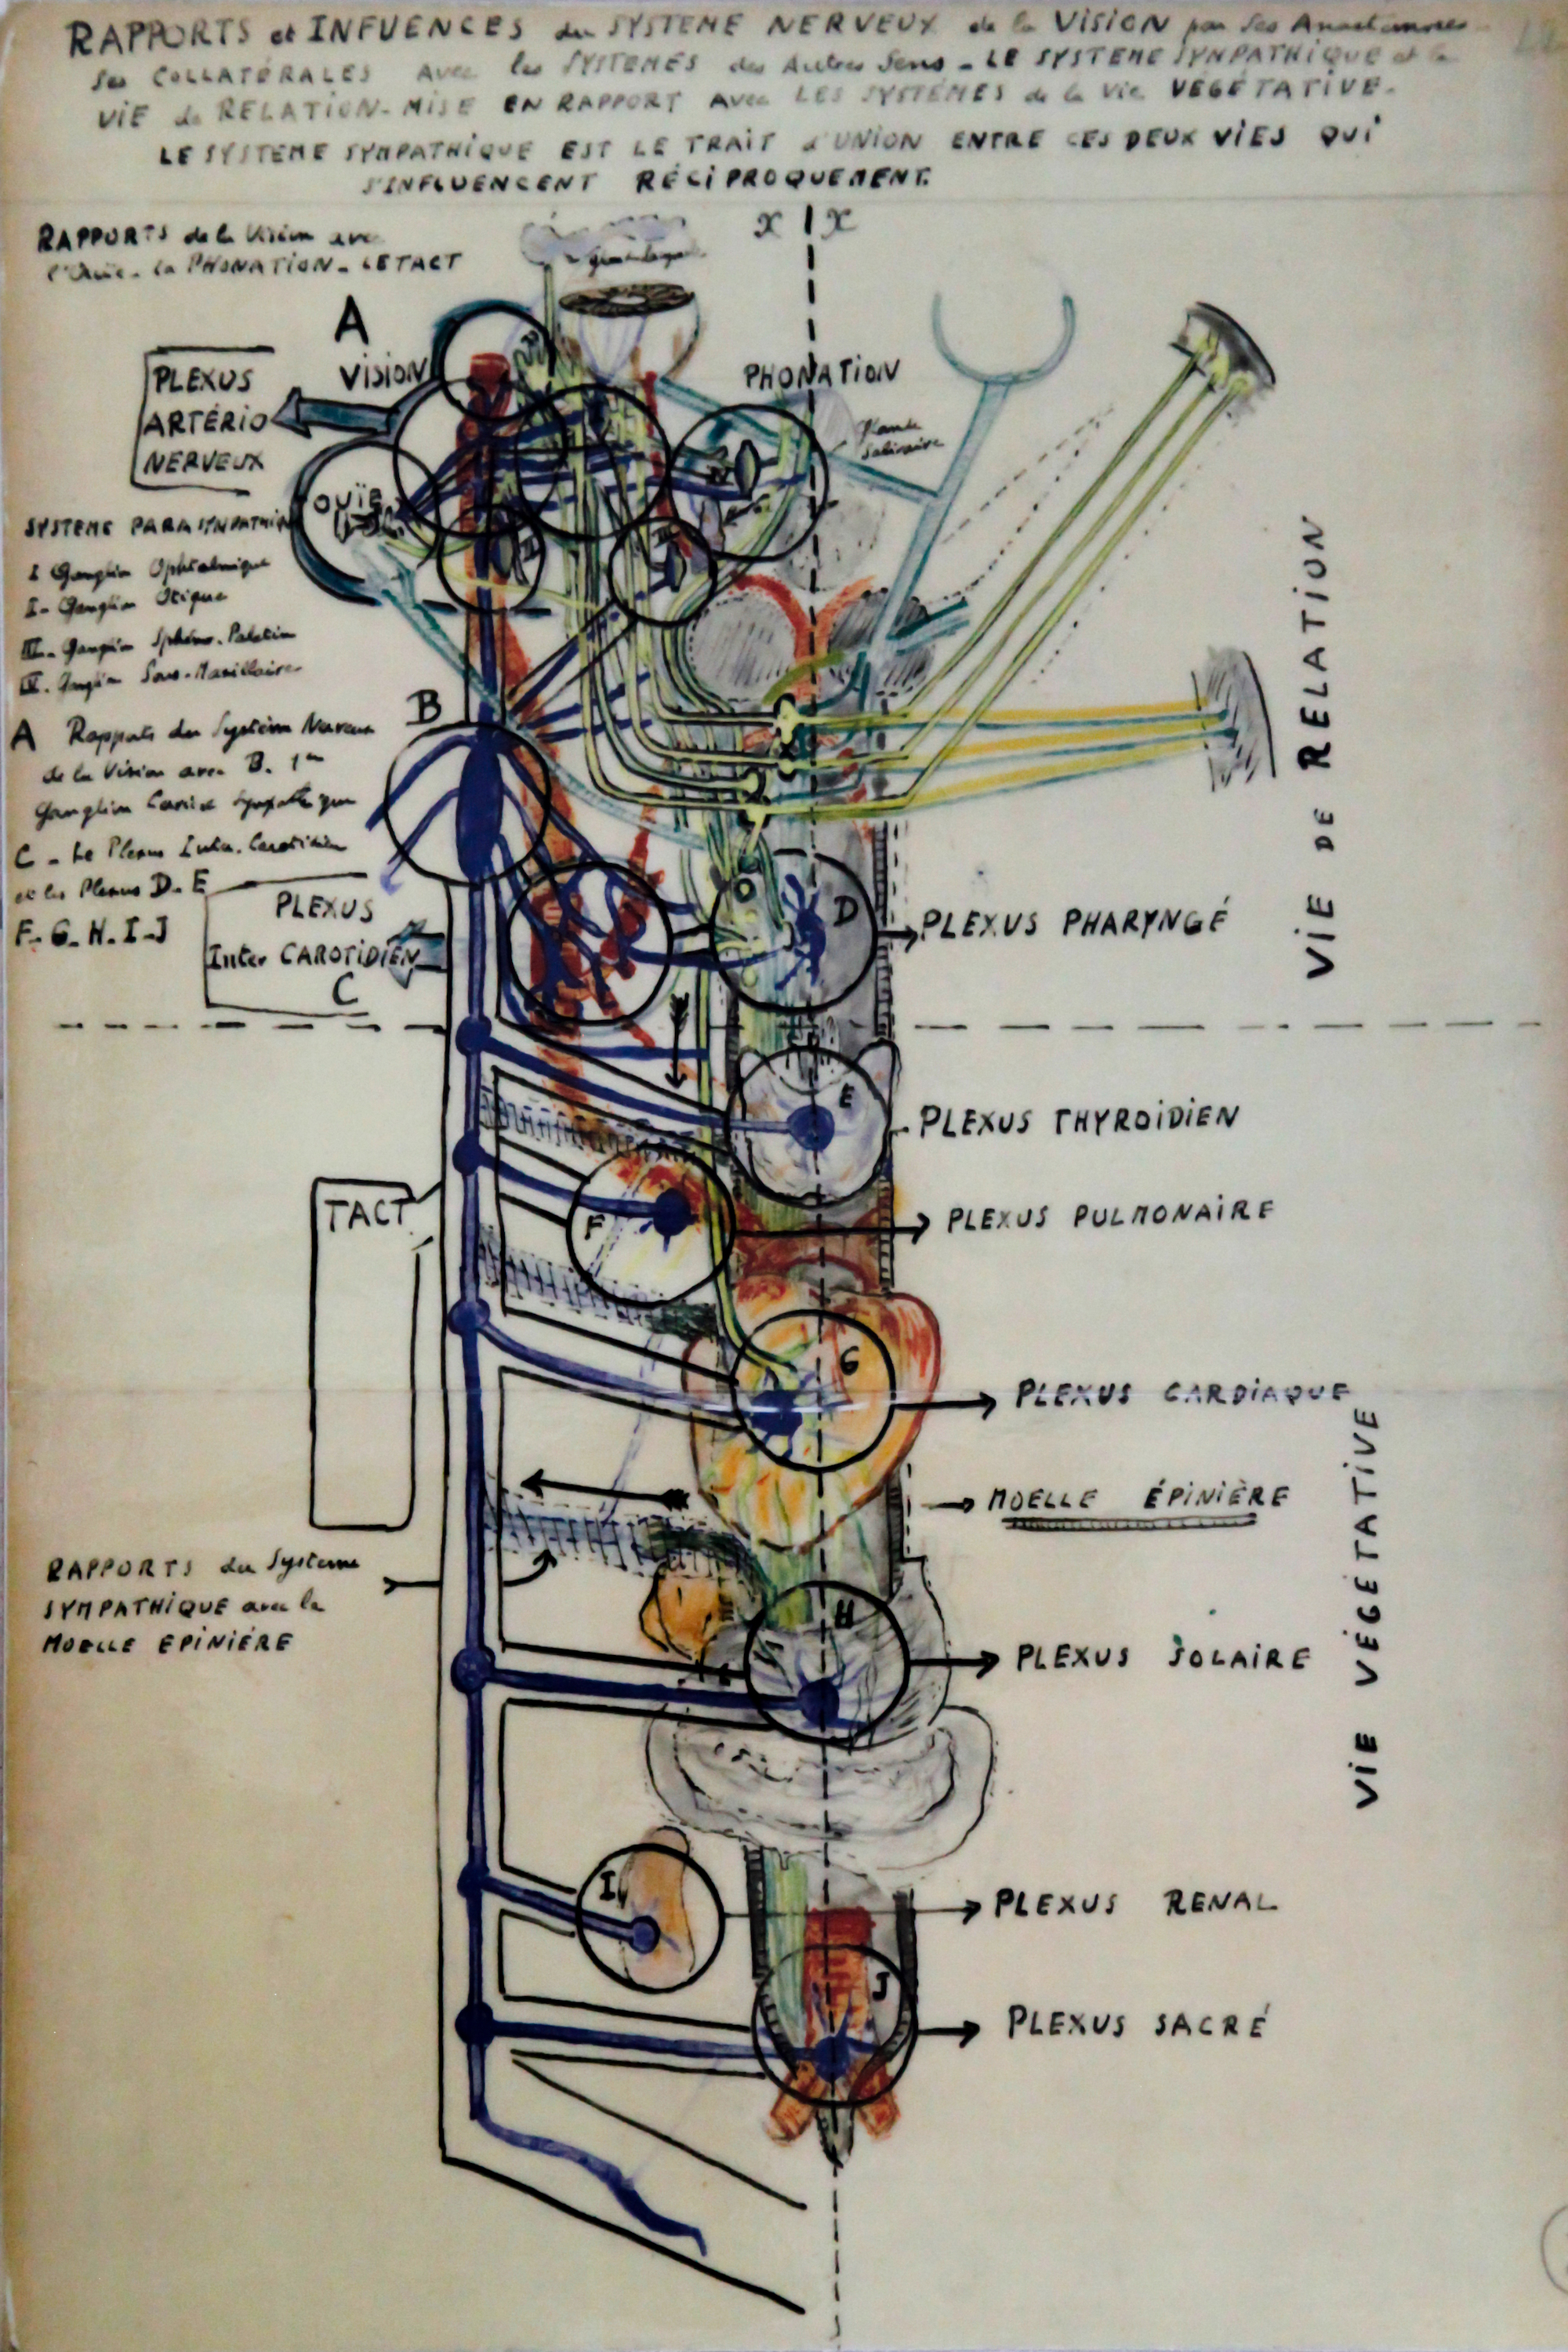 RAPPORTS et INFUENCES du SYSTEME NERVEUX de la VISION par ses Anastomoses
ses COLLATÉRALES Avec les SYSTEMES des Autres Sens - LE SYSTEME SYMPATHIQUE et la
VIE de RELATION - MISE EN RAPPORT Avec LES SYSTÉMES de la Vie VÉGÉTATIVE.
LE SYSTEME SYMPATHIQUE EST LE TRAIT d'UNION ENTRE CES DEUX VIES QUI
S'INFLUENCENT RÉCIPROQUEMENT.
x x
RAPPORTS de la Vision avec
l'Ouïe - la PHONATION - LE TACT
A
VISION
PHONATION
PLEXUS
ARTÉRIO
NERVEUX
Glande
Salivaire
OUÏE
SYSTEME PARASYMPATHIQ
I Ganglion Ophtalmique
I - Ganglion Otique
III - Ganglion Sphéno-Palatin
IV. Ganglion Sous-Maxillaire
B
A Rapports du Système Nerveux
de la Vision avec B. 1er
Ganglion Cervical Sympathique
C - Le Plexus Inter. Carotidien
et les Plexus D. E
F. G. H. I. J
PLEXUS
Inter CAROTIDIEN
C
VIE DE RELATION
D
PLEXUS PHARYNGÉ
E
PLEXUS THYROÏDIEN
TACT
F
PLEXUS PULMONAIRE
G
PLEXUS CARDIAQUE
MOELLE ÉPINIÈRE
VIE VÉGÉTATIVE
RAPPORTS du Systeme
SYMPATHIQUE avec la
MOELLE EPINIÉRE
H
PLEXUS SOLAIRE
I
PLEXUS RENAL
J
PLEXUS SACRÉ